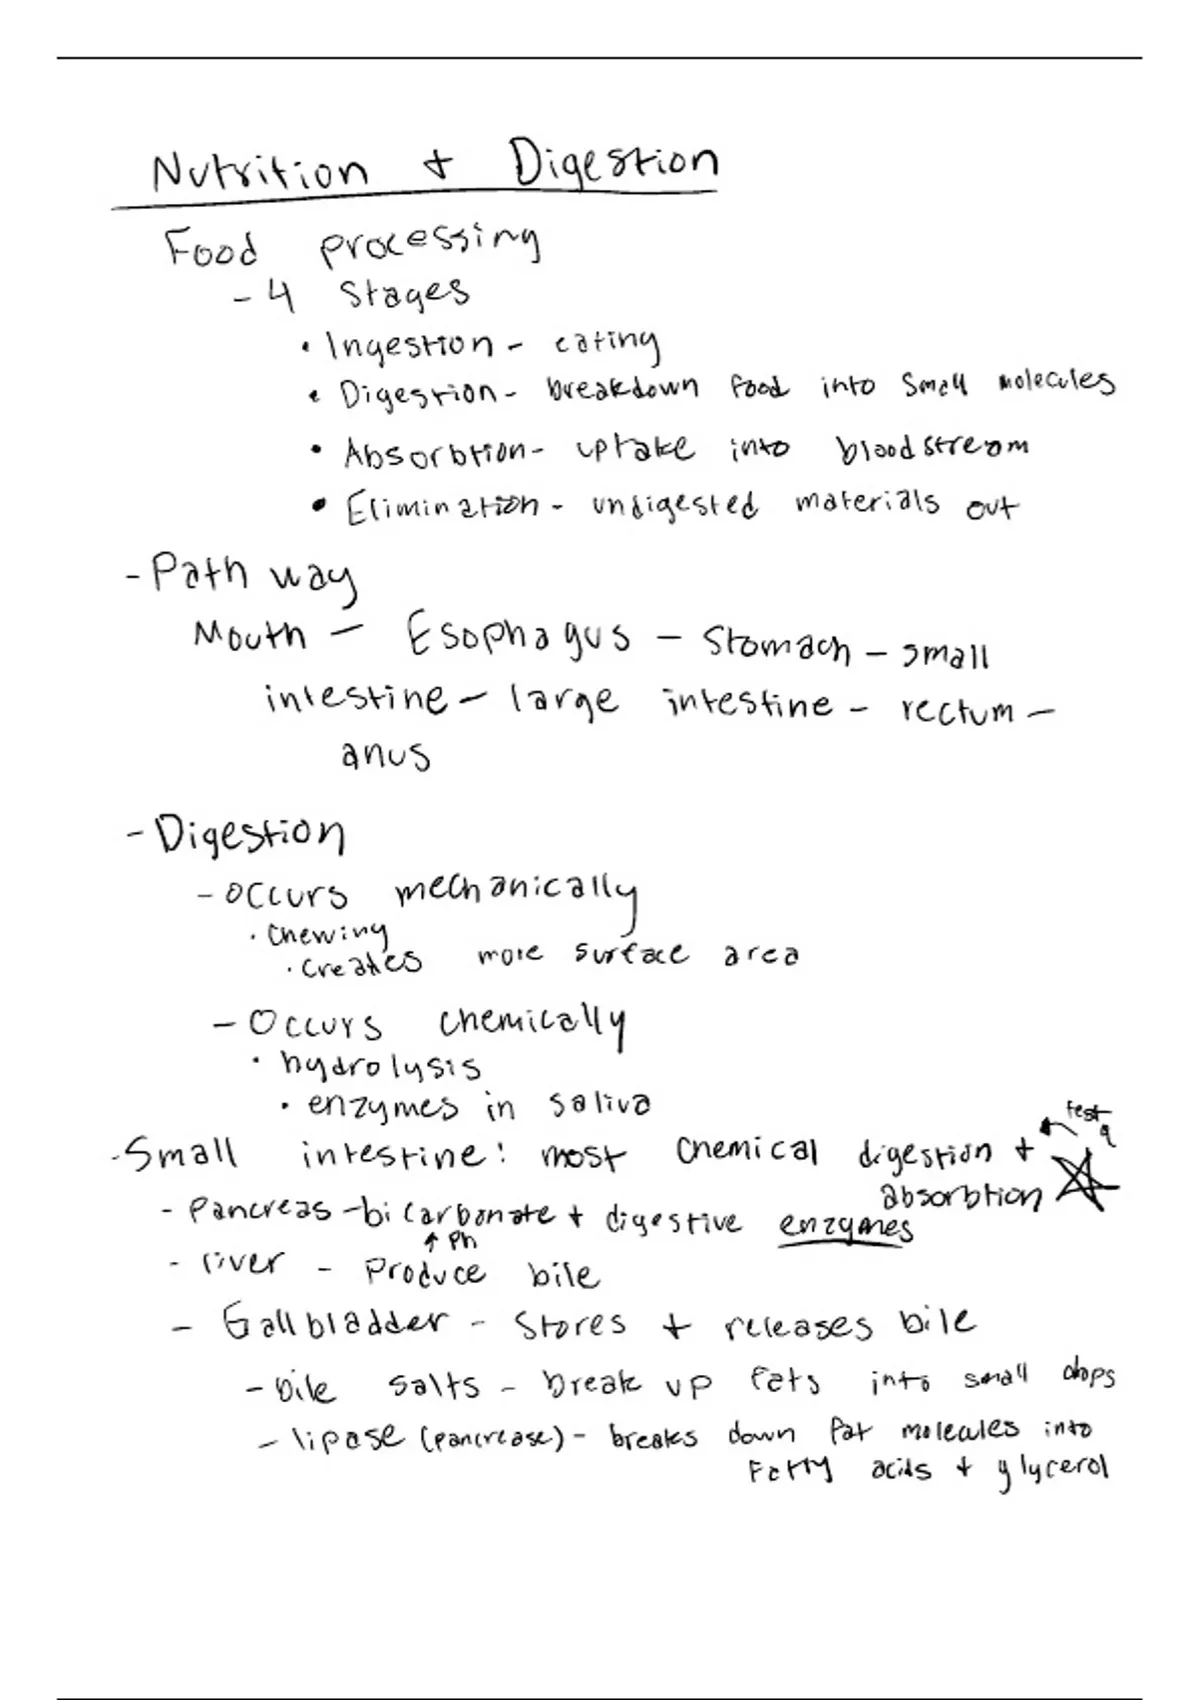 Nutrition + Digestion
Food processing
- 4 Stages
• Ingestion - eating
• Digestion - breakdown food into small molecules
• Absorbtion - uptake into bloodstream
• Elimination - undigested materials out
- Pathway
Mouth - Esophagus - Stomach - small
intestine - large intestine - rectum -
anus
- Digestion
- Occurs mechanically
• Chewing
• Creates more surface area
- Occurs chemically
• hydrolysis
• enzymes in saliva
test
q
- Small intestine: most chemical digestion +
absorbtion
- Pancreas - bicarbonate + digestive enzymes
↑ Ph
- liver - Produce bile
- Gallbladder - Stores + releases bile
- bile salts - break up fats into small drops
- lipase (pancrease) - breaks down fat molecules into
Fatty acids + glycerol